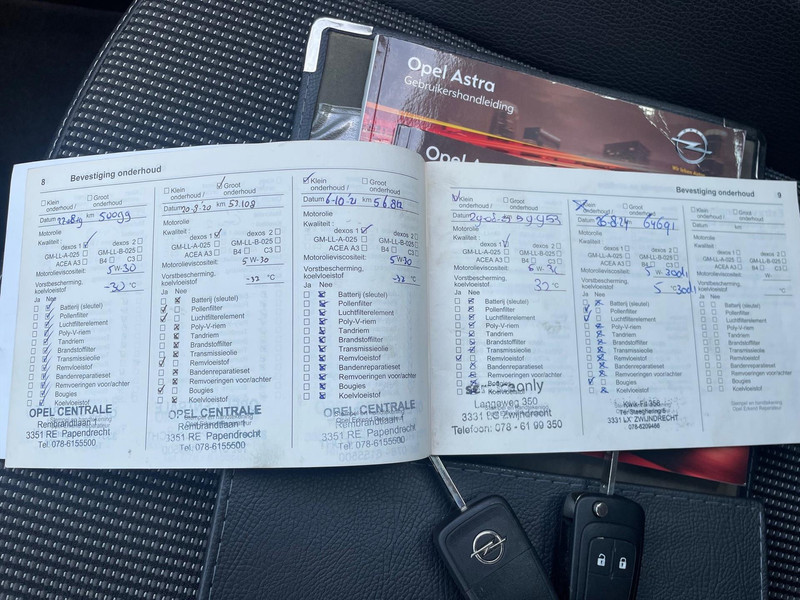 Opel Astra
Gebruikershandleiding
Opel Astra
8 Bevestiging onderhoud
☐ Klein onderhoud / ☐ Groot onderhoud
Datum km 50099
Motorolie
Kwaliteit
dexos 1 ☑ dexos 2 ☐
GM-LL-A-025 ☐ GM-LL-B-025 ☐
ACEA A3 ☐ B4 ☐ C3 ☐
Motorolieviscositeit: 5 W-30
Vorstbescherming, koelvloeistof -30 °C
Ja Nee
☐ ☑ Batterij (sleutel)
☐ ☑ Pollenfilter
☐ ☑ Luchtfilterelement
☐ ☑ Poly-V-riem
☐ ☑ Tandriem
☐ ☑ Brandstoffilter
☐ ☑ Transmissieolie
☐ ☑ Remvloeistof
☐ ☑ Bandenreparatieset
☐ ☑ Remvoeringen voor/achter
☐ ☑ Bougies
☐ ☑ Koelvloeistof
OPEL CENTRALE
Rembrandtlaan 1
3351 RE Papendrecht
Tel: 078-6155500
☐ Klein onderhoud / ☑ Groot onderhoud
Datum 20-8-20 km 53.108
Motorolie
Kwaliteit
dexos 1 ☑ dexos 2 ☐
GM-LL-A-025 ☐ GM-LL-B-025 ☐
ACEA A3 ☐ B4 ☐ C3 ☐
Motorolieviscositeit: 5 W-30
Vorstbescherming, koelvloeistof -32 °C
Ja Nee
Batterij (sleutel)
Pollenfilter
Luchtfilterelement
Poly-V-riem
Tandriem
Brandstoffilter
Transmissieolie
Remvloeistof
Bandenreparatieset
Remvoeringen voor/achter
Bougies
Koelvloeistof
OPEL CENTRALE
Rembrandtlaan 1
3351 RE Papendrecht
Tel: 078-6155500
☑ Klein onderhoud / ☐ Groot onderhoud
Datum 6-10-21 km 56.812
Motorolie
Kwaliteit
dexos 1 ☑ dexos 2 ☐
GM-LL-A-025 ☐ GM-LL-B-025 ☐
ACEA A3 ☐ B4 ☐ C3 ☐
Motorolieviscositeit: 5 W-30
Vorstbescherming, koelvloeistof -32 °C
Ja Nee
Batterij (sleutel)
Pollenfilter
Luchtfilterelement
Poly-V-riem
Tandriem
Brandstoffilter
Transmissieolie
Remvloeistof
Bandenreparatieset
Remvoeringen voor/achter
Bougies
Koelvloeistof
OPEL CENTRALE
Rembrandtlaan 1
3351 RE Papendrecht
Tel: 078-6155500
Bevestiging onderhoud 9
☑ Klein onderhoud / ☐ Groot onderhoud
Datum
Motorolie
Kwaliteit
dexos 1 ☑ dexos 2 ☐
GM-LL-A-025 ☐ GM-LL-B-025 ☐
ACEA A3 ☐ B4 ☐ C3 ☐
Motorolieviscositeit:
Vorstbescherming, koelvloeistof 30 °C
Ja Nee
Batterij (sleutel)
Pollenfilter
Luchtfilterelement
Poly-V-riem
Tandriem
Brandstoffilter
Transmissieolie
Remvloeistof
Bandenreparatieset
Remvoeringen voor/achter
Bougies
Koelvloeistof
Langeweg 350
3331 LX Zwijndrecht
Telefoon: 078 - 61 99 350
☒ Klein onderhoud / ☐ Groot onderhoud
Datum 64691
Motorolie
Kwaliteit
dexos 1 ☐ dexos 2 ☐
GM-LL-A-025 ☐ GM-LL-B-025 ☐
ACEA A3 ☐ B4 ☐ C3 ☐
Motorolieviscositeit: 5 W
Vorstbescherming, koelvloeistof °C
Ja Nee
Batterij (sleutel)
Pollenfilter
Luchtfilterelement
Poly-V-riem
Tandriem
Brandstoffilter
Transmissieolie
Remvloeistof
Bandenreparatieset
Remvoeringen voor/achter
Bougies
Koelvloeistof
Kwik-Fit 358
3331 LX ZWIJNDRECHT
☐ Klein onderhoud / ☐ Groot onderhoud
Datum km
Motorolie
Kwaliteit
dexos 1 ☐ dexos 2 ☐
GM-LL-A-025 ☐ GM-LL-B-025 ☐
ACEA A3 ☐ B4 ☐ C3 ☐
Motorolieviscositeit:
W-
Vorstbescherming, koelvloeistof °C
Ja Nee
☐ ☐ Batterij (sleutel)
☐ ☐ Pollenfilter
☐ ☐ Luchtfilterelement
☐ ☐ Poly-V-riem
☐ ☐ Tandriem
☐ ☐ Brandstoffilter
☐ ☐ Transmissieolie
☐ ☐ Remvloeistof
☐ ☐ Bandenreparatieset
☐ ☐ Remvoeringen voor/achter
☐ ☐ Bougies
☐ ☐ Koelvloeistof